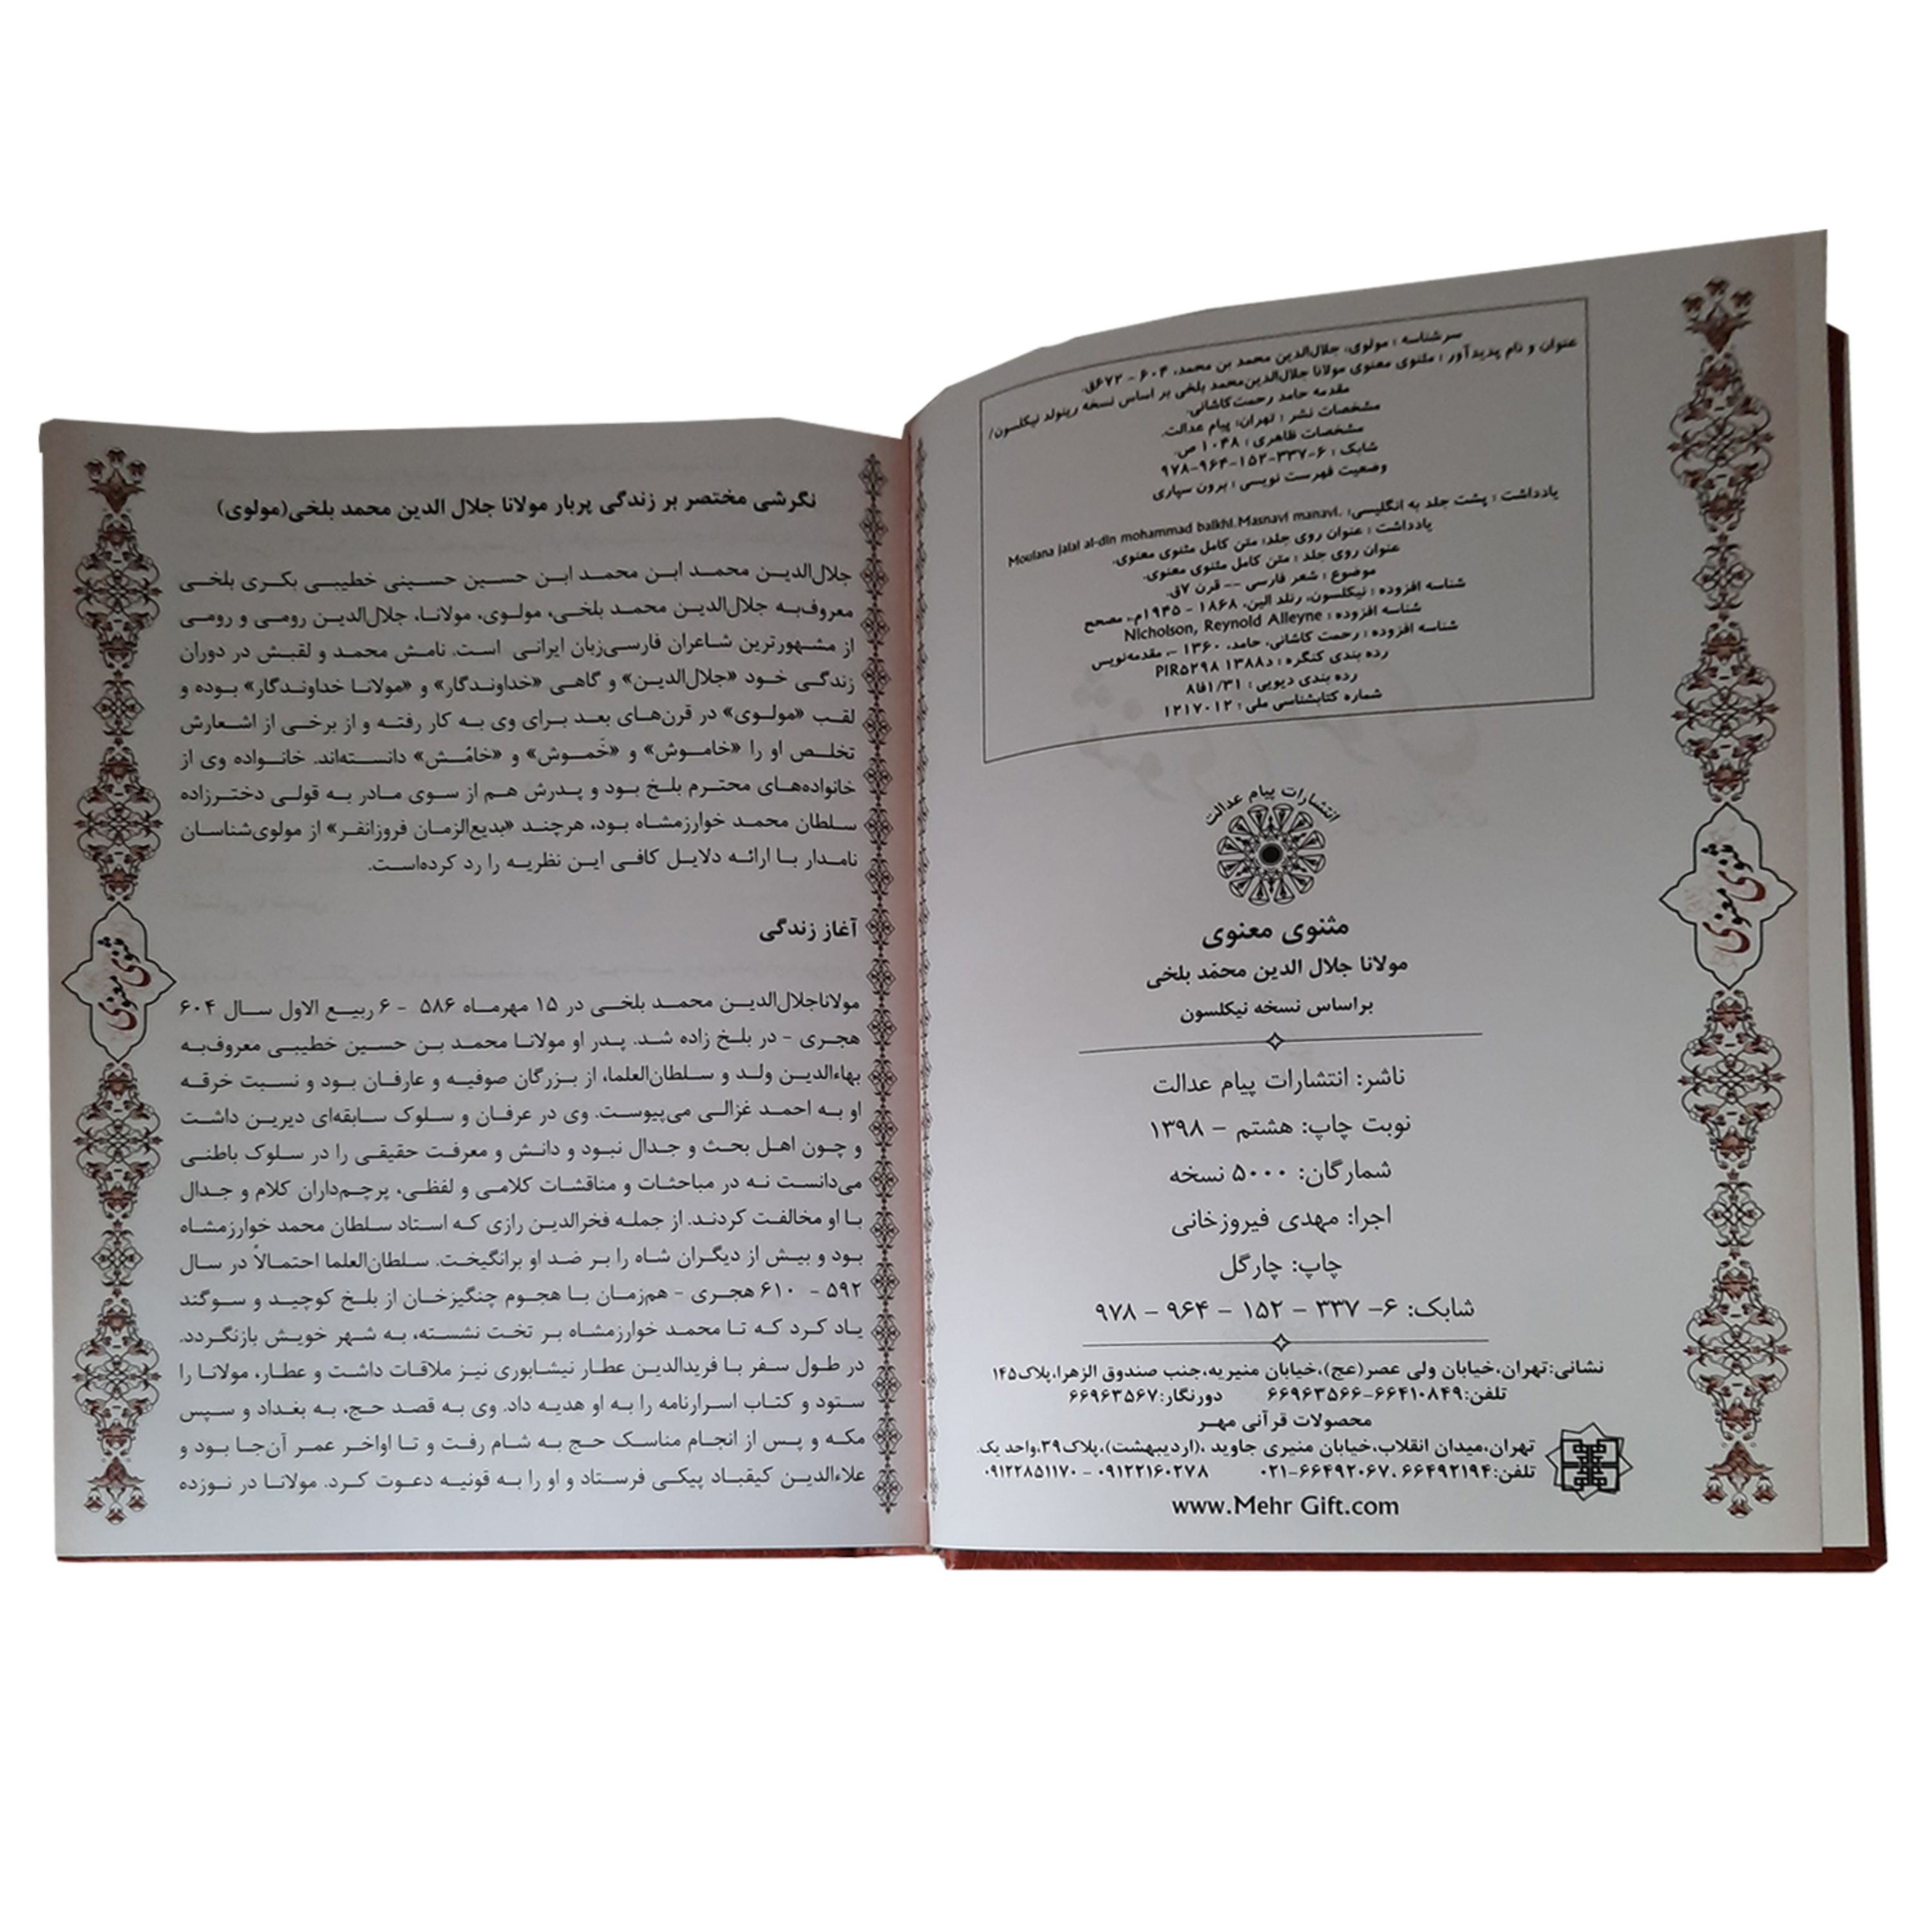 سرشناسه : مولوی، جلال‌الدین محمد بن محمد، ۶۰۴ - ۶۷۲ق.
عنوان و نام پدیدآور : مثنوی معنوی مولانا جلال‌الدین‌محمد بلخی بر اساس نسخه رینولد نیکلسون/
مقدمه حامد رحمت‌کاشانی.
مشخصات نشر : تهران: پیام عدالت.
مشخصات ظاهری : ۱۰۴۸ ص.
شابک : ۶-۳۳۷-۱۵۲-۹۶۴-۹۷۸
وضعیت فهرست نویسی : برون سپاری
یادداشت : پشت جلد به انگلیسی: .Moulana jalal al-din mohammad balkhi.Masnavi manavi
یادداشت : عنوان روی جلد: متن کامل مثنوی معنوی.
عنوان روی جلد : متن کامل مثنوی معنوی.
موضوع : شعر فارسی -- قرن ۷ق.
شناسه افزوده : نیکلسون، رنلد الین، ۱۸۶۸ - ۱۹۴۵م.، مصحح
شناسه افزوده : Nicholson, Reynold Alleyne
شناسه افزوده : رحمت کاشانی، حامد، ۱۳۶۰ -، مقدمه‌نویس
رده بندی کنگره : ۱۳۸۸د PIR۵۲۹۸
رده بندی دیویی : ۸فا۱/۳۱
شماره کتابشناسی ملی : ۱۲۱۷۰۱۲
انتشارات پیام عدالت
مثنوی معنوی
مولانا جلال الدین محمّد بلخی
براساس نسخه نیکلسون
ناشر: انتشارات پیام عدالت
نوبت چاپ: هشتم - ۱۳۹۸
شمارگان: ۵۰۰۰ نسخه
اجرا: مهدی فیروزخانی
چاپ: چارگل
شابک: ۶- ۳۳۷ - ۱۵۲ - ۹۶۴ - ۹۷۸
نشانی:تهران،خیابان ولی عصر(عج)،خیابان منیریه،جنب صندوق الزهرا،پلاک۱۴۵
تلفن:۶۶۴۱۰۸۴۹-۶۶۹۶۳۵۶۶ دورنگار:۶۶۹۶۳۵۶۷
محصولات قرآنی مهر
تهران،میدان انقلاب،خیابان منیری جاوید ،(اردیبهشت)،پلاک۳۹،واحد یک.
تلفن:۶۶۴۹۲۱۹۴ ،۶۶۴۹۲۰۶۷-۰۲۱ ۰۹۱۲۲۱۶۰۲۷۸ - ۰۹۱۲۲۸۵۱۱۷۰
www.Mehr Gift.com
مثنوی معنوی
نگرشی مختصر بر زندگی پربار مولانا جلال الدین محمد بلخی(مولوی)
جلال‌الدین محمد ابن محمد ابن حسین حسینی خطیبی بکری بلخی
معروف‌به جلال‌الدین محمد بلخی، مولوی، مولانا، جلال‌الدین رومی و رومی
از مشهورترین شاعران فارسی‌زبان ایرانی است. نامش محمد و لقبش در دوران
زندگی خود «جلال‌الدین» و گاهی «خداوندگار» و «مولانا خداوندگار» بوده و
لقب «مولوی» در قرن‌های بعد برای وی به کار رفته و از برخی از اشعارش
تخلص او را «خاموش» و «خَموش» و «خامُش» دانسته‌اند. خانواده وی از
خانواده‌های محترم بلخ بود و پدرش هم از سوی مادر به قولی دخترزاده
سلطان محمد خوارزمشاه بود، هرچند «بدیع‌الزمان فروزانفر» از مولوی‌شناسان
نامدار با ارائه دلایل کافی این نظریه را رد کرده‌است.
آغاز زندگی
مولاناجلال‌الدین محمد بلخی در ۱۵ مهرماه ۵۸۶ - ۶ ربیع الاول سال ۶۰۴
هجری - در بلخ زاده شد. پدر او مولانا محمد بن حسین خطیبی معروف‌به
بهاءالدین ولد و سلطان‌العلما، از بزرگان صوفیه و عارفان بود و نسبت خرقه
او به احمد غزالی می‌پیوست. وی در عرفان و سلوک سابقه‌ای دیرین داشت
و چون اهل بحث و جدال نبود و دانش و معرفت حقیقی را در سلوک باطنی
می‌دانست نه در مباحثات و مناقشات کلامی و لفظی، پرچم‌داران کلام و جدال
با او مخالفت کردند. از جمله فخرالدین رازی که استاد سلطان محمد خوارزمشاه
بود و بیش از دیگران شاه را بر ضد او برانگیخت. سلطان‌العلما احتمالاً در سال
۵۹۲ - ۶۱۰ هجری - هم‌زمان با هجوم چنگیزخان از بلخ کوچید و سوگند
یاد کرد که تا محمد خوارزمشاه بر تخت نشسته، به شهر خویش بازنگردد.
در طول سفر با فریدالدین عطار نیشابوری نیز ملاقات داشت و عطار، مولانا را
ستود و کتاب اسرارنامه را به او هدیه داد. وی به قصد حج، به بغداد و سپس
مکه و پس از انجام مناسک حج به شام رفت و تا اواخر عمر آن‌جا بود و
علاءالدین کیقباد پیکی فرستاد و او را به قونیه دعوت کرد. مولانا در نوزده
مثنوی معنوی